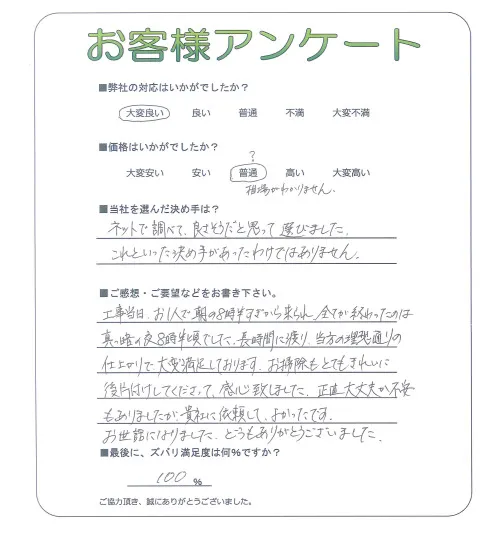 お客様アンケート
■弊社の対応はいかがでしたか？
大変良い 良い 普通 不満 大変不満
■価格はいかがでしたか？
?
大変安い 安い 普通 高い 大変高い
相場がわかりません。
■当社を選んだ決め手は？
ネットで調べて、良さそうだと思って選びました。
これといった決め手があったわけではありません。
■ご感想・ご要望などをお書き下さい。
工事当日、お1人で朝の8時半すぎから来られ、全てが終わったのは
真っ暗の夜8時半頃でした。長時間に渡り、当方の理想通りの
仕上がりで大変満足しております。お掃除もとてもきれいに
後片付けしてくださって、感心致しました。正直大丈夫か不安
もありましたが貴社に依頼して、よかったです。
お世話になりました。どうもありがとうございました。
■最後に、ズバリ満足度は何%ですか？
100 %
ご協力頂き、誠にありがとうございました。